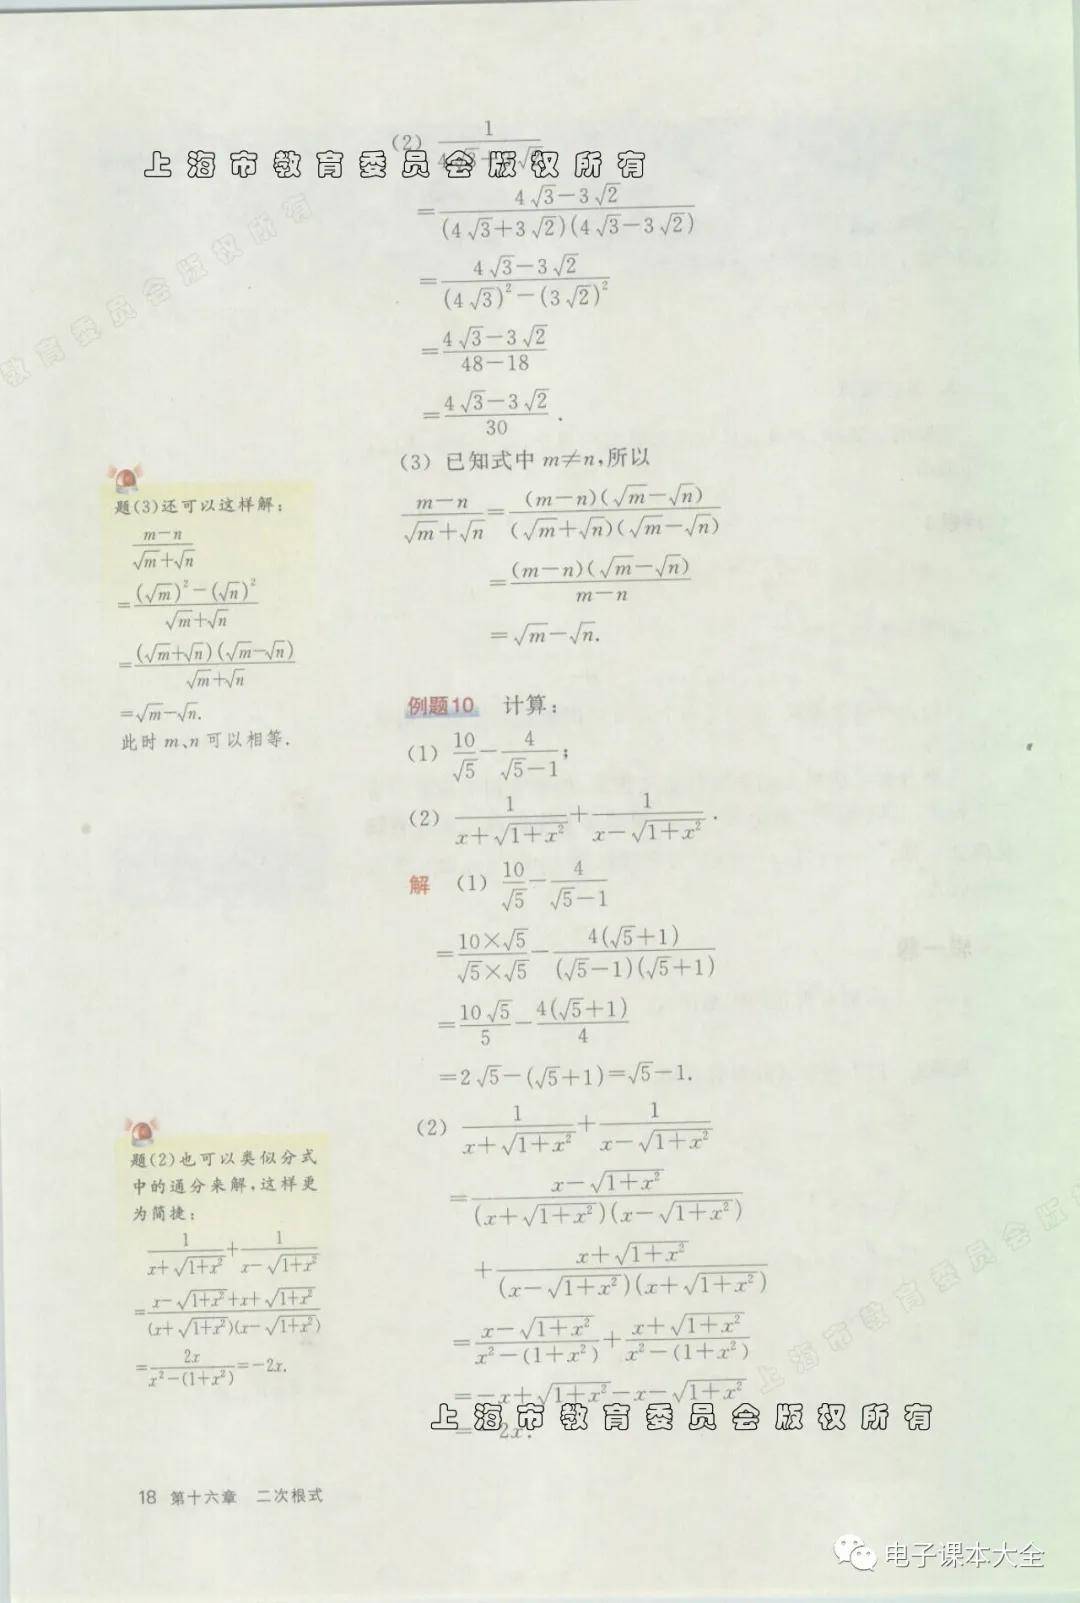 (2) 1/(4√3+3√2)
上海市教育委员会版权所有
=(4√3-3√2)/((4√3+3√2)(4√3-3√2))
=(4√3-3√2)/((4√3)²-(3√2)²)
=(4√3-3√2)/(48-18)
=(4√3-3√2)/30.
(3) 已知式中 m≠n,所以
(m-n)/(√m+√n)=((m-n)(√m-√n))/((√m+√n)(√m-√n))
=((m-n)(√m-√n))/(m-n)
=√m-√n.
题(3)还可以这样解:
(m-n)/(√m+√n)
=((√m)²-(√n)²)/(√m+√n)
=((√m+√n)(√m-√n))/(√m+√n)
=√m-√n.
此时 m、n 可以相等.
例题10 计算:
(1) 10/√5-4/(√5-1);
(2) 1/(x+√(1+x²))+1/(x-√(1+x²)).
解 (1) 10/√5-4/(√5-1)
=(10×√5)/(√5×√5)-(4(√5+1))/((√5-1)(√5+1))
=(10√5)/5-(4(√5+1))/4
=2√5-(√5+1)=√5-1.
(2) 1/(x+√(1+x²))+1/(x-√(1+x²))
=(x-√(1+x²))/((x+√(1+x²))(x-√(1+x²)))
+(x+√(1+x²))/((x-√(1+x²))(x+√(1+x²)))
=(x-√(1+x²))/(x²-(1+x²))+(x+√(1+x²))/(x²-(1+x²))
=-x+√(1+x²)-x-√(1+x²)
=-2x.
上海市教育委员会版权所有
题(2)也可以类似分式
中的通分来解,这样更
为简捷:
1/(x+√(1+x²))+1/(x-√(1+x²))
=(x-√(1+x²)+x+√(1+x²))/((x+√(1+x²))(x-√(1+x²)))
=2x/(x²-(1+x²))=-2x.
教育委员会版权所有
上海市教育委员会版
18 第十六章 二次根式
电子课本大全